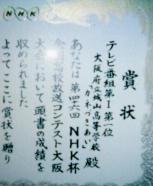 NHK
賞状
テレビ番組第1第一位
大阪府立
高等学校 殿
あなたは第四六回NHK杯
全国高校放送コンテスト大阪
大会において頭書の成績を
収められました
よってここに賞状を贈り